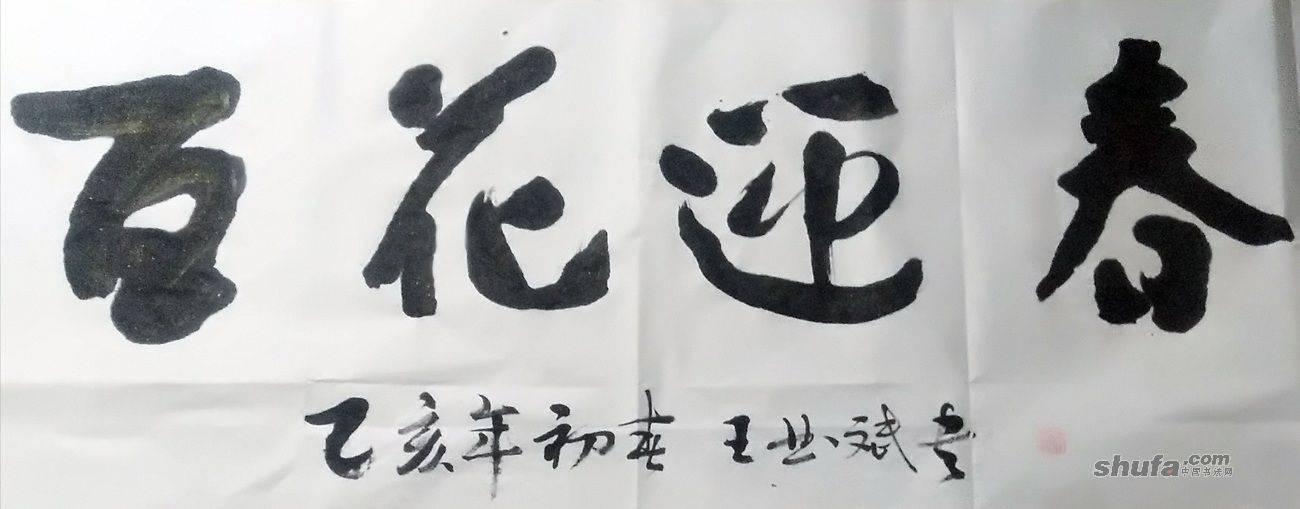 百花迎春
乙亥年初春 王业斌书
shufa.com
中国书法网